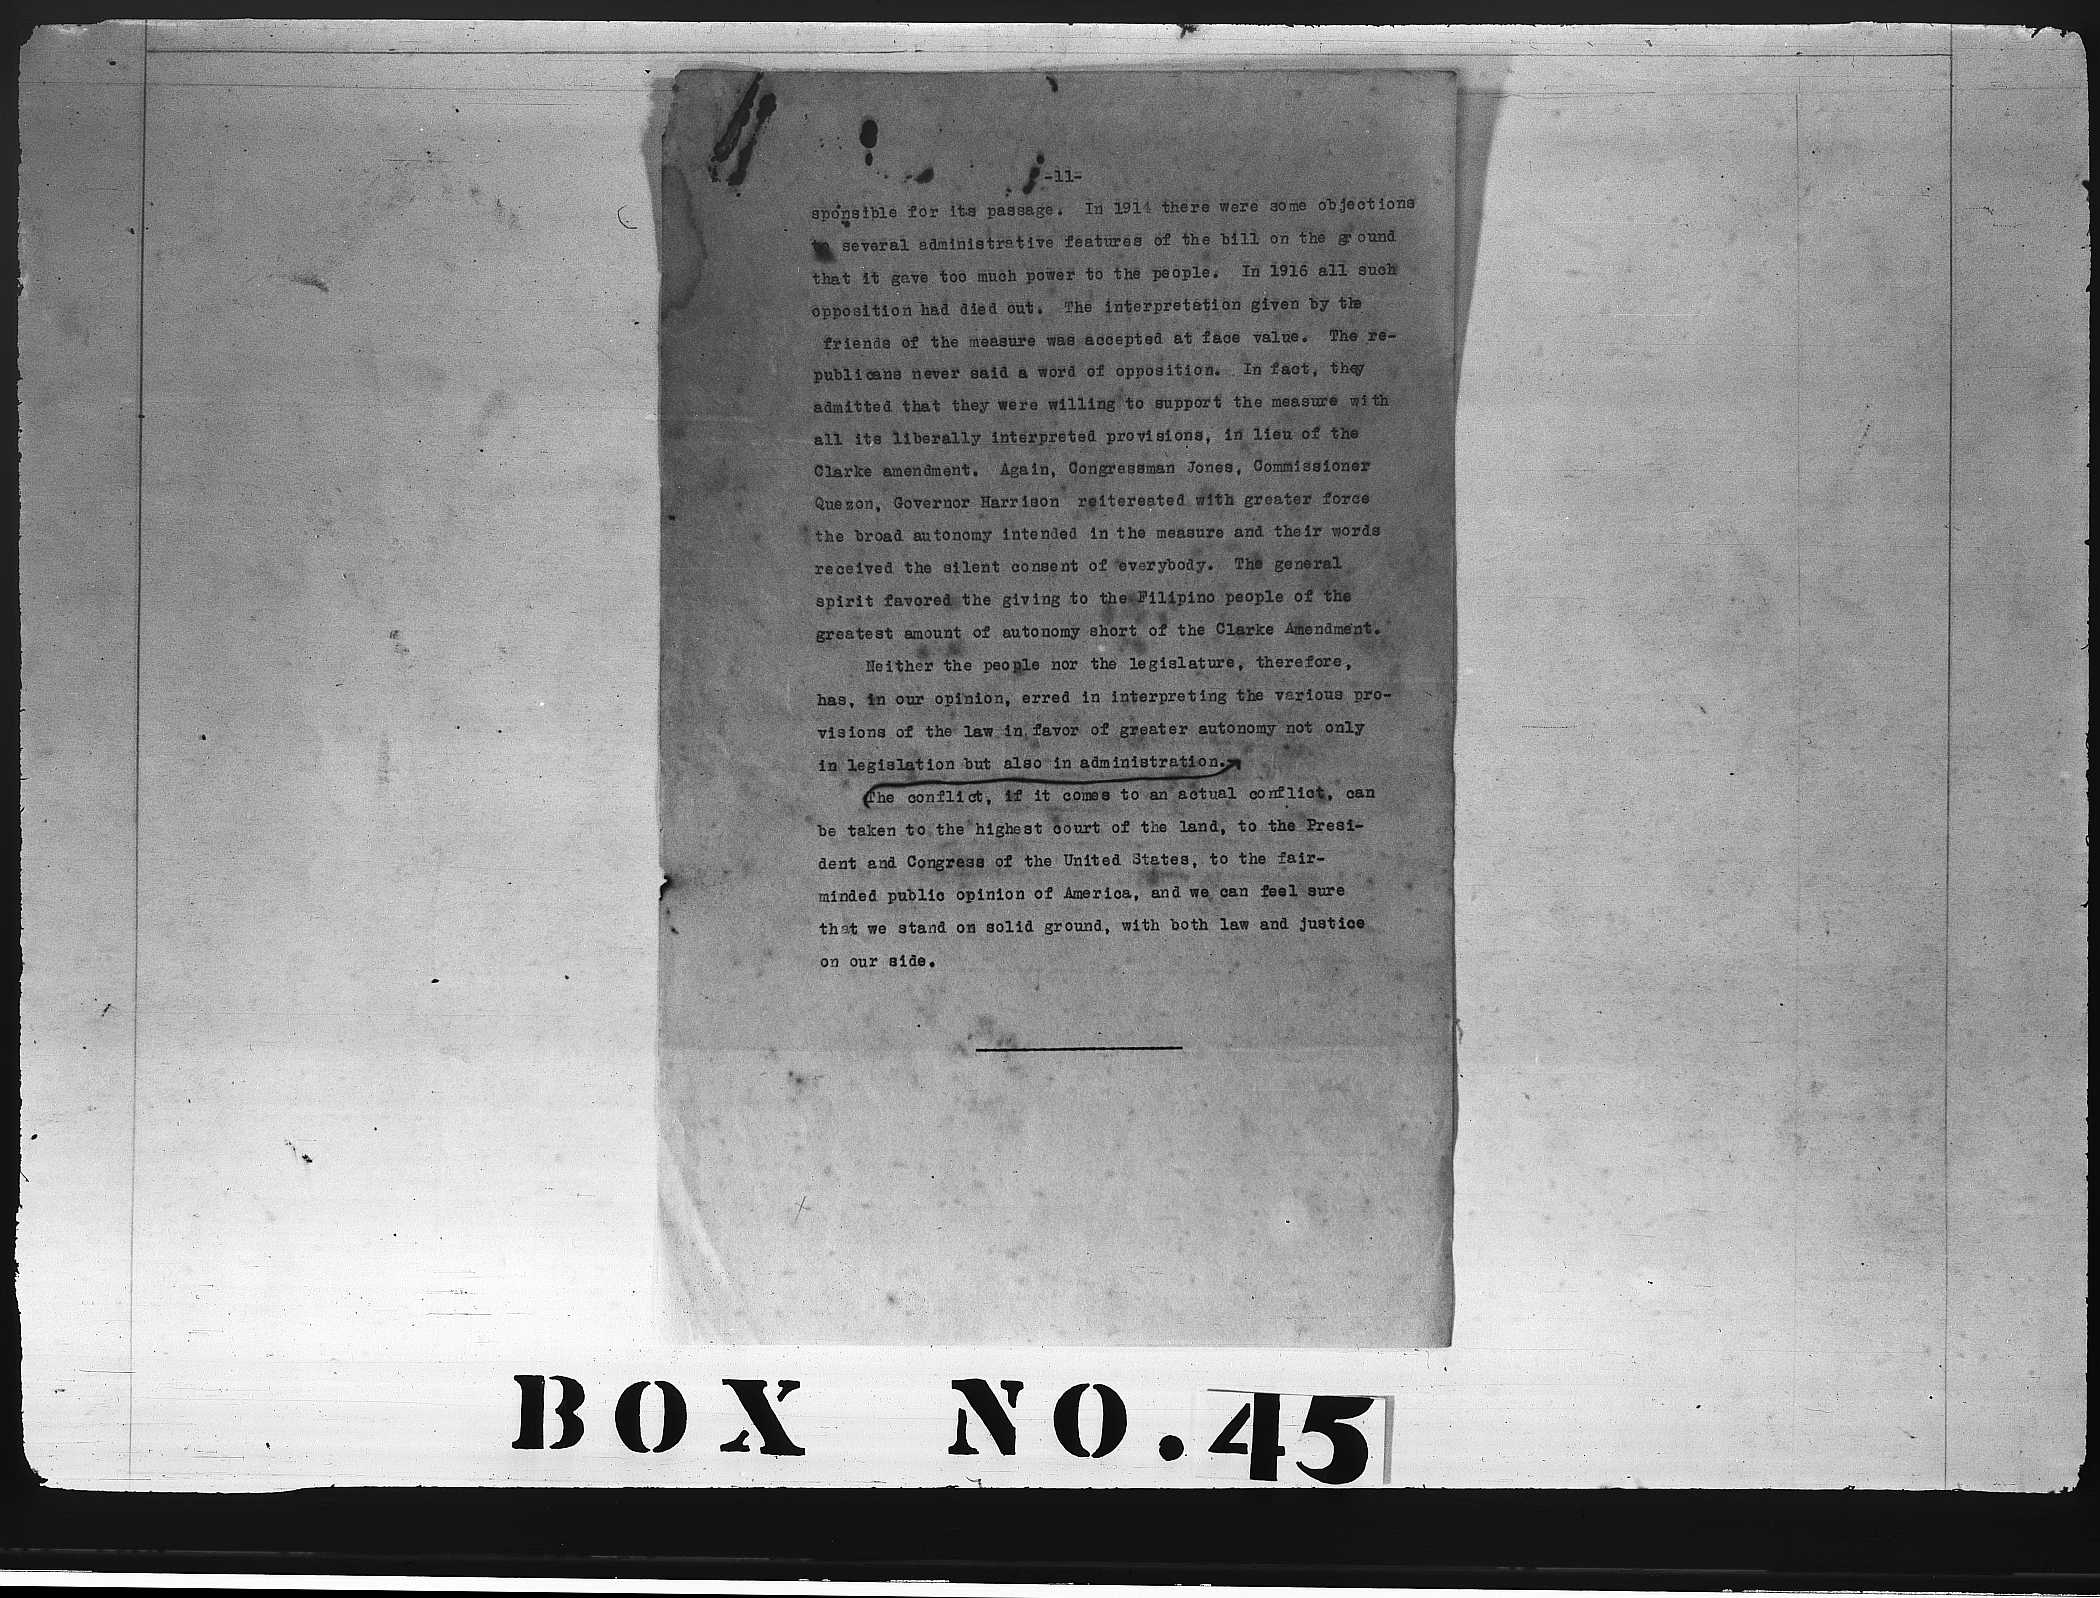 -11-
sponsible for its passage. In 1914 there were some objections
to several administrative features of the bill on the ground
that it gave too much power to the people. In 1916 all such
opposition had died out. The interpretation given by the
friends of the measure was accepted at face value. The re-
publicans never said a word of opposition. In fact, they
admitted that they were willing to support the measure with
all its liberally interpreted provisions, in lieu of the
Clarke amendment. Again, Congressman Jones, Commissioner
Quezon, Governor Harrison reitereated with greater force
the broad autonomy intended in the measure and their words
received the silent consent of everybody. The general
spirit favored the giving to the Filipino people of the
greatest amount of autonomy short of the Clarke Amendment.
Neither the people nor the legislature, therefore,
has, in our opinion, erred in interpreting the various pro-
visions of the law in favor of greater autonomy not only
in legislation but also in administration.
The conflict, if it comes to an actual conflict, can
be taken to the highest court of the land, to the Presi-
dent and Congress of the United States, to the fair-
minded public opinion of America, and we can feel sure
that we stand on solid ground, with both law and justice
on our side.
BOX NO. 45